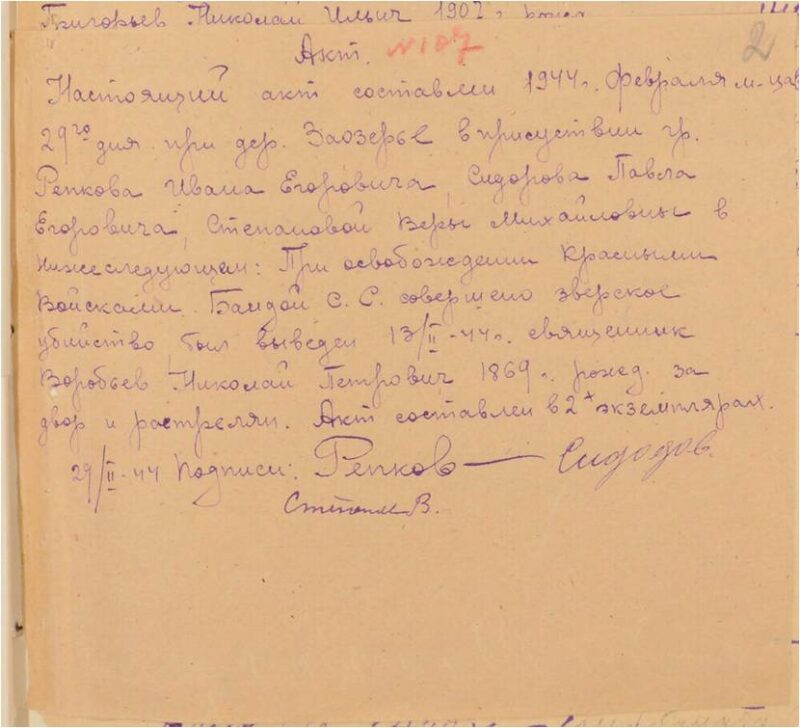 Григорьев Николай Ильич 1902 г
2
Акт. №107
Настоящий акт составлен 1944 г. февраля м-ца
29го дня при дер. Заозерье в присуствии гр.
Репкова Ивана Егоровича, Сидорова Павла
Егоровича, Степановой Веры Михайловны в
нижеследующем: При освобождении Красными
Войсками. Бандой С.С. совершено зверское
убийство, был выведен 13/II-44 г. священник
Воробьев Николай Петрович 1869 г. рожд. за
двор и растрелян. Акт составлен в 2х экземплярах.
29/II-44 Подписи: Репков Сидодов.
В.